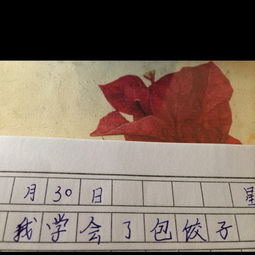 月30日 星
我学会了包饺子